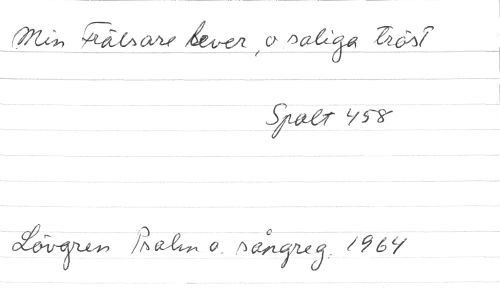 Min Frälsare lever, o saliga tröst
Spalt 458
Lövgren Psalm o. sångreg. 1964